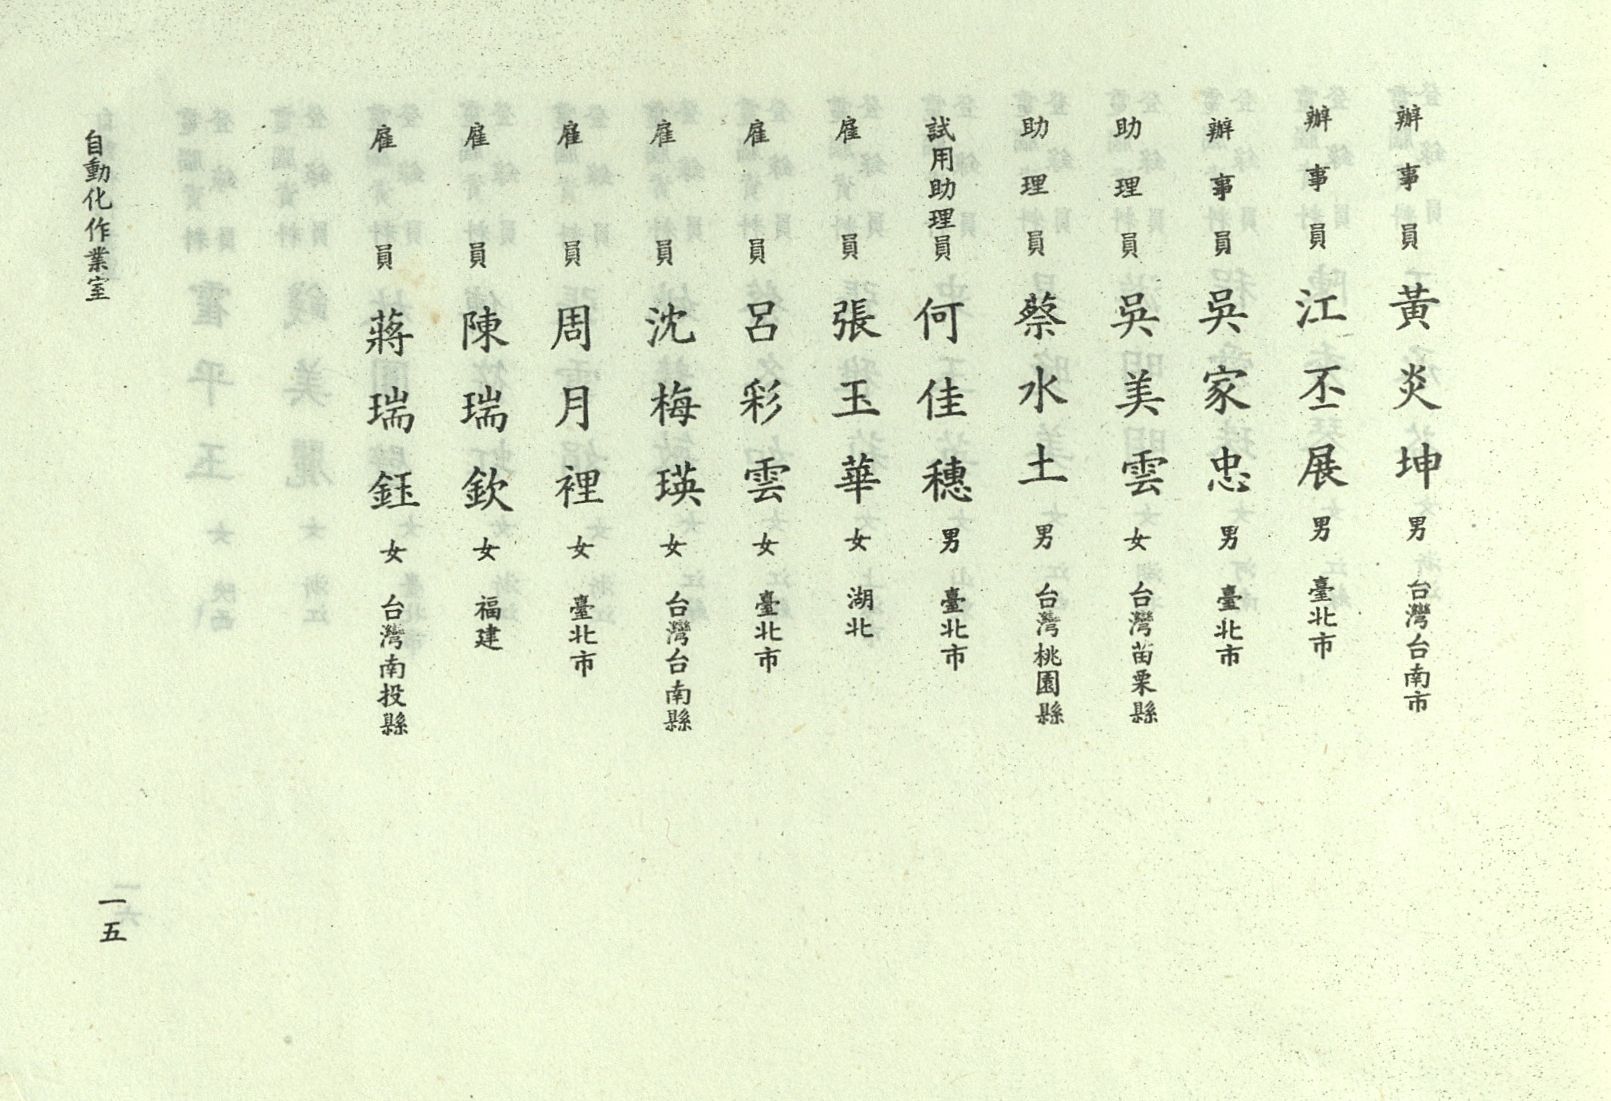 辦事員 黃炎坤 男 台灣台南市
辦事員 江丕展 男 臺北市
辦事員 吳家忠 男 臺北市
助理員 吳美雲 女 台灣苗栗縣
助理員 蔡水土 男 台灣桃園縣
試用助理員 何佳穗 男 臺北市
雇員 張玉華 女 湖北
雇員 呂彩雲 女 臺北市
雇員 沈梅瑛 女 台灣台南縣
雇員 周月裡 女 臺北市
雇員 陳瑞欽 女 福建
雇員 蔣瑞鈺 女 台灣南投縣
自動化作業室
一五